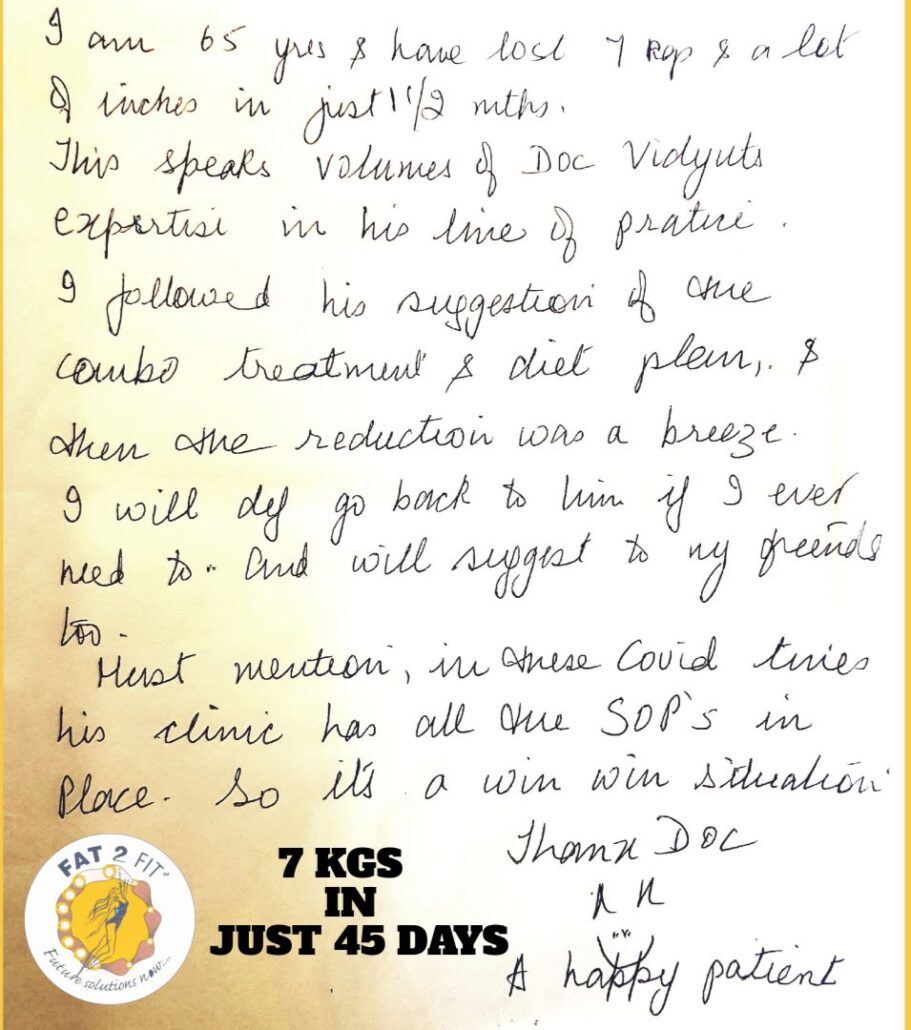 I am 65 yrs & have lost 7 kgs & a lot
of inches in just 1 1/2 mths.
This speaks volumes of Doc Vidyuts
expertise in his line of pratice.
I followed his suggestion of the
combo treatment & diet plan, &
then the reduction was a breeze.
I will def go back to him if I ever
need to.. And will suggest to my freinds
too.
Must mention, in these Covid times
his clinic has all the SOP's in
Place. So it's a win win situation
Thanx DOC
A happy patient
FAT 2 FIT
Future solutions now....
7 KGS
IN
JUST 45 DAYS